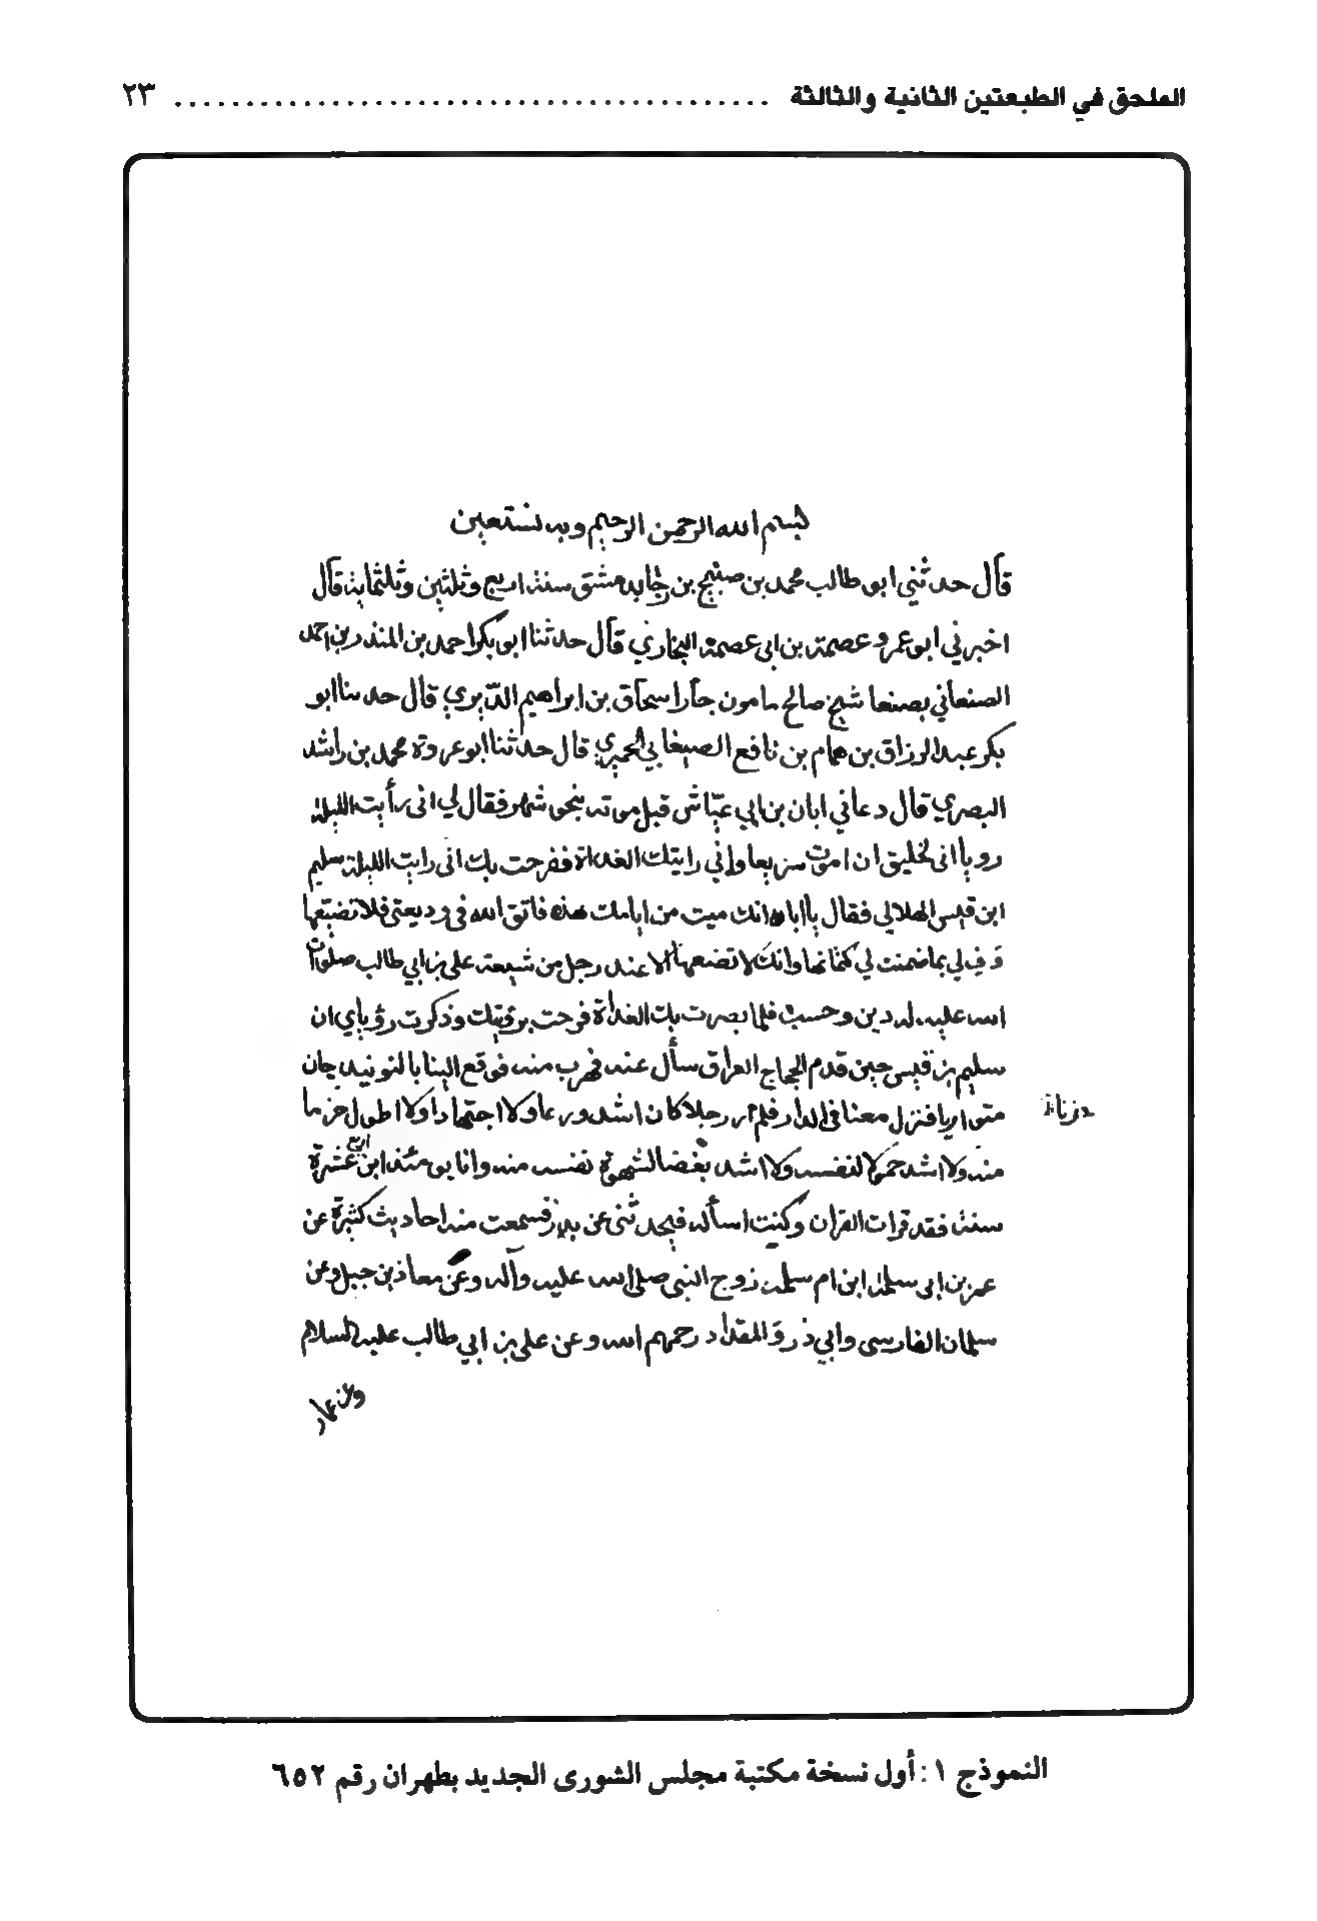 الملحق في الطبعتين الثانية والثالثة ........................................ ٢٣
بسم الله الرحمن الرحيم وبه نستعين
قال حدثني ابو طالب محمد بن صبيح بن رجا بدمشق سنة اربع وثلثين وثلثماية قال
اخبرني ابو عمرو عصمة بن ابى عصمة البخاري قال حدثنا ابو بكر احمد بن المنذر بن احمد
الصنعاني بصنعا شيخ صالح مامون جار اسحاق بن ابراهيم الدبري قال حدثنا ابو
بكر عبد الرزاق بن همام بن نافع الصنعاني الحميري قال حدثنا ابو عروة محمد بن راشد
البصري قال دعاني ابان بن ابي عياش قبل موته بنحو شهر فقال لي انى رأيت الليلة
رويا انى لخليق ان اموت سريعا واني رايتك الغداة ففرحت بك انى رايت الليلة سليم
ابن قيس الهلالي فقال يا ابان انك ميت من ايامك هذه فاتق الله فى وديعتى فلا تضيعها
وَفِ لي بما ضمنت لي كتمانها وانك لا تضعها الا عند رجل من شيعة على بن ابي طالب صلوات
الله عليه له دين وحسب فلما بصرت بك الغداة فرحت برؤيتك وذكرت رؤياي ان
سليم بن قيس حين قدم الحجاج العراق سأل عنه فهرب منه فوقع الينا بالنوبندجان
متواريا فنزل معنا فى الدار فلم ار رجلا كان اشد ورعا ولا اجتهادا ولا اطول حزنا
منه ولا اشد خمولا لنفسه ولا اشد بغضا لشهوة نفسه منه وانا يومئذ ابن اربع عشرة
سنة فقد قرات القران وكنت اساله فيحدثنى عن بدر فسمعت منه احاديث كثيرة عن
عمر بن ابى سلمة ابن ام سلمة زوج النبى صلى الله عليه وآله وعن معاذ بن جبل وعن
سلمان الفارسى وابي ذر والمقداد رحمهم الله وعن على بن ابي طالب عليه السلام
وعن عمار
النموذج ١: أول نسخة مكتبة مجلس الشورى الجديد بطهران رقم ٦٥٢